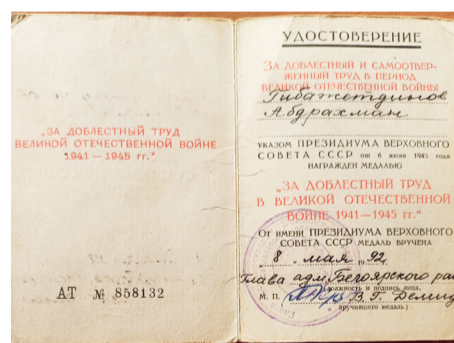 „ЗА ДОБЛЕСТНЫЙ ТРУД
ВЕЛИКОЙ ОТЕЧЕСТВЕННОЙ ВОЙНЕ
1941—1945 гг."
АТ № 858132
УДОСТОВЕРЕНИЕ
ЗА ДОБЛЕСТНЫЙ И САМООТВЕР-
ЖЕННЫЙ ТРУД В ПЕРИОД
ВЕЛИКОЙ ОТЕЧЕСТВЕННОЙ ВОЙНЫ
Гибажетдинов
Абдрахман
УКАЗОМ ПРЕЗИДИУМА ВЕРХОВНОГО
СОВЕТА СССР от 6 июня 1945 года
НАГРАЖДЕН МЕДАЛЬЮ
„ЗА ДОБЛЕСТНЫЙ ТРУД
В ВЕЛИКОЙ ОТЕЧЕСТВЕННОЙ
ВОЙНЕ 1941—1945 гг."
ОТ ИМЕНИ ПРЕЗИДИУМА ВЕРХОВНОГО
СОВЕТА СССР МЕДАЛЬ ВРУЧЕНА
8 мая 1992
Глава адм. Белоярского рай
(должность и подпись лица,
М. П. В. Г.
вручившего медаль)